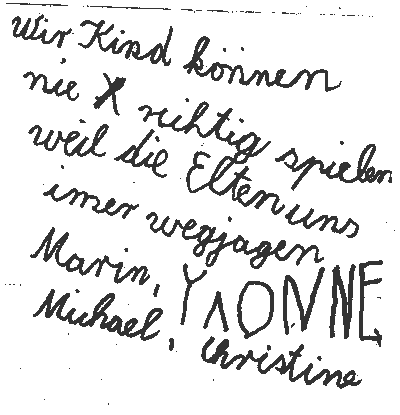 Wir Kind können
nie X richtig spielen
weil die Elten uns
imer wegjagen
Marin, YVONNE
Michael, Christine